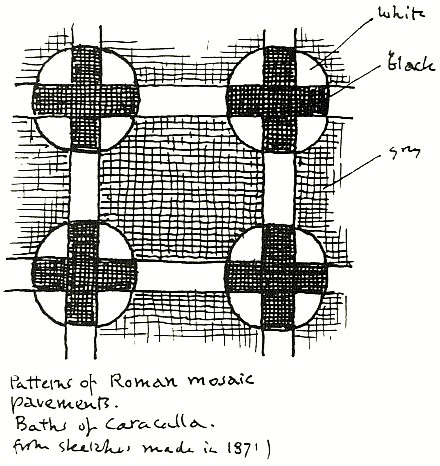 white
black
grey
Patterns of Roman mosaic
pavements.
Baths of Caracalla.
from sketches made in 1871)